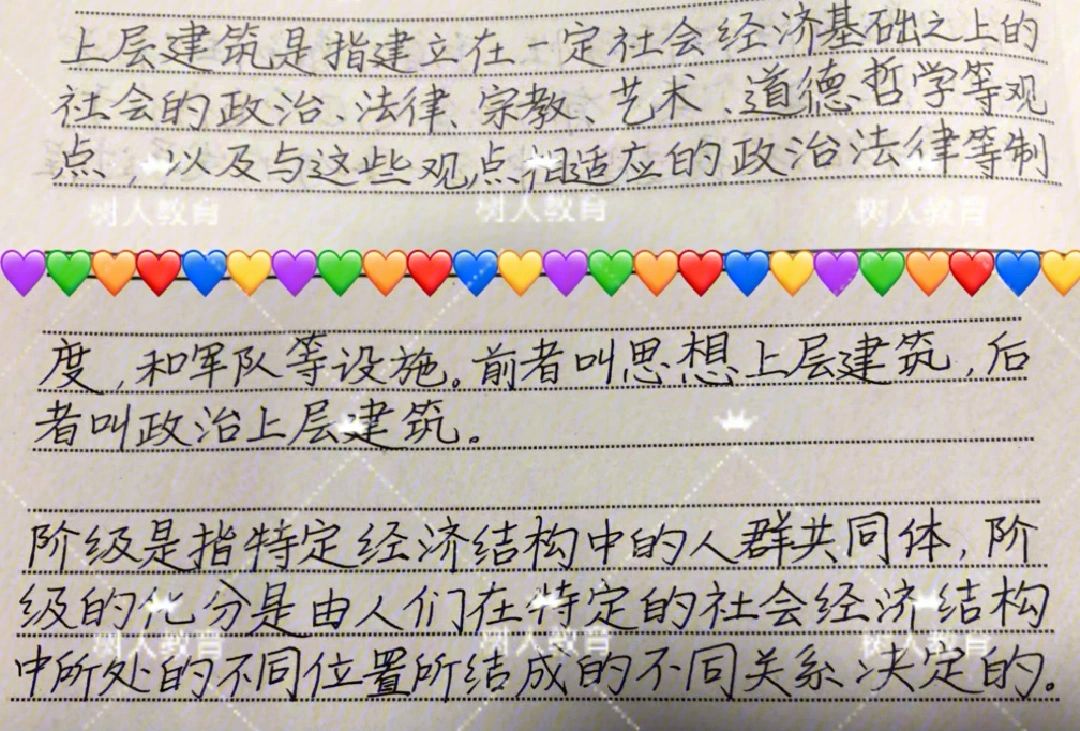 上层建筑是指建立在一定社会经济基础之上的
社会的政治、法律、宗教、艺术、道德、哲学等观
点，以及与这些观点相适应的政治法律等制
树人教育 树人教育 树人教育
度，和军队等设施。前者叫思想上层建筑，后
者叫政治上层建筑。
阶级是指特定经济结构中的人群共同体，阶
级的化分是由人们在特定的社会经济结构
树人教育 树人教育 树人教育
中所处的不同位置所结成的不同关系决定的。